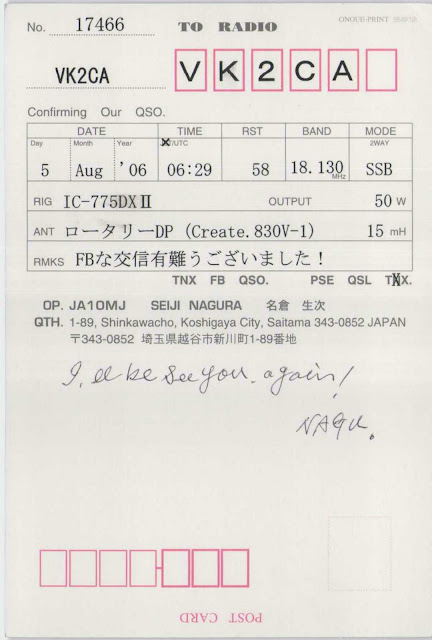 No. 17466 TO RADIO ONOUE-PRINT
VK2CA VK2CA
Confirming Our QSO.
DATE TIME RST BAND MODE
Day Month Year /UTC 2WAY
5 Aug '06 06:29 58 18.130 MHz SSB
RIG IC-775DXⅡ OUTPUT 50 W
ANT ロータリーDP (Create.830V-1) 15 mH
RMKS FBな交信有難うございました！
TNX FB QSO. PSE QSL TNX.
OP. JA1OMJ SEIJI NAGURA 名倉 生次
QTH. 1-89, Shinkawacho, Koshigaya City, Saitama 343-0852 JAPAN
〒343-0852 埼玉県越谷市新川町1-89番地
I,ll be see you. again!
NAGU.
POST CARD